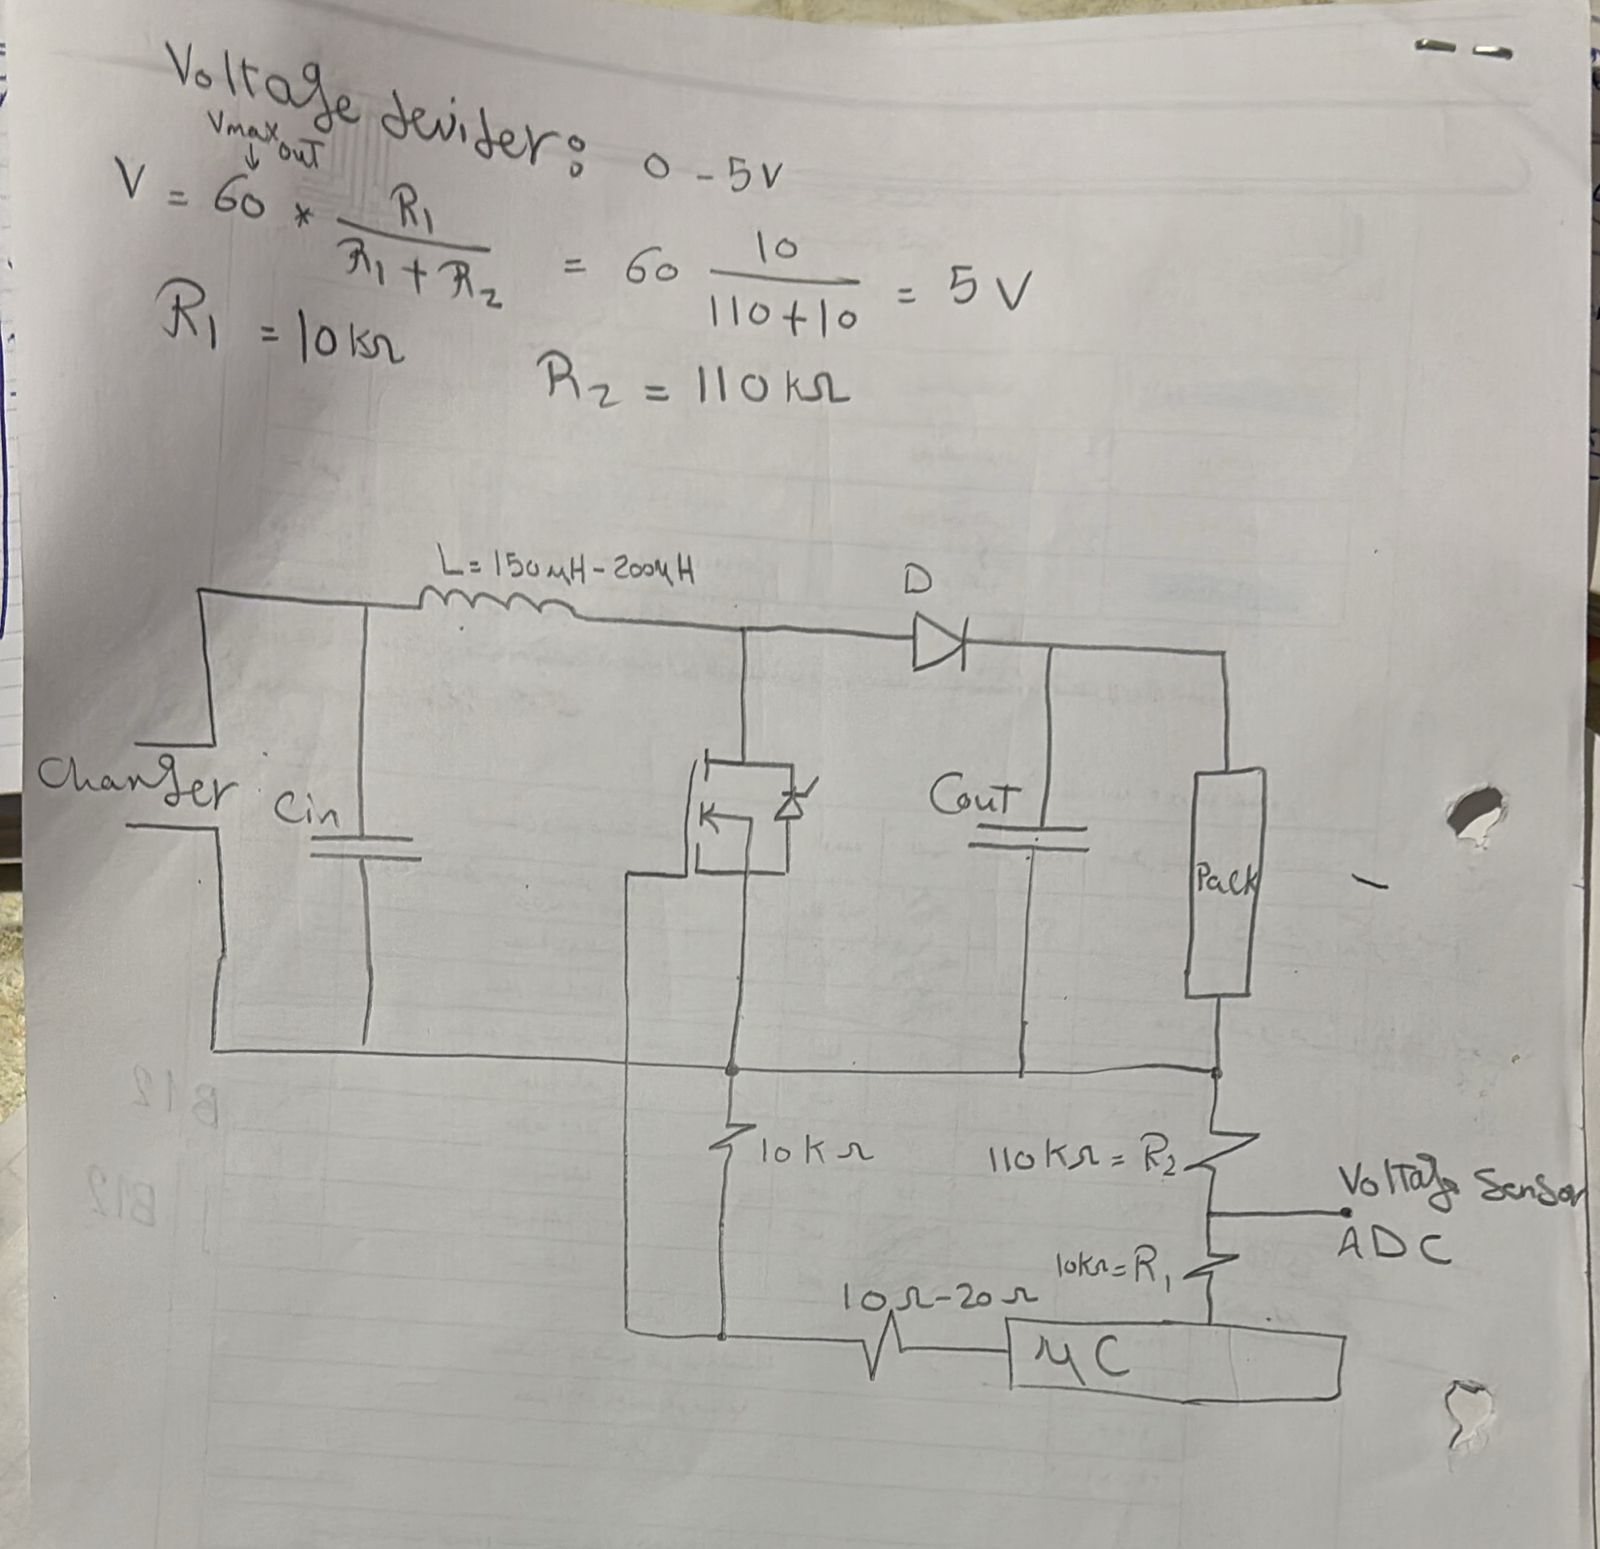 Voltage devider: 0-5V
Vmax out
↓
V = 60 * R1 / R1 + R2 = 60 10 / 110+10 = 5V
R1 = 10kΩ
R2 = 110kΩ
L = 150μH - 200μH
D
Charger
Cin
Cout
Pack
10kΩ
110kΩ = R2
Voltage Sensor
ADC
10kΩ = R1
10Ω-20Ω
μC
B12
B12